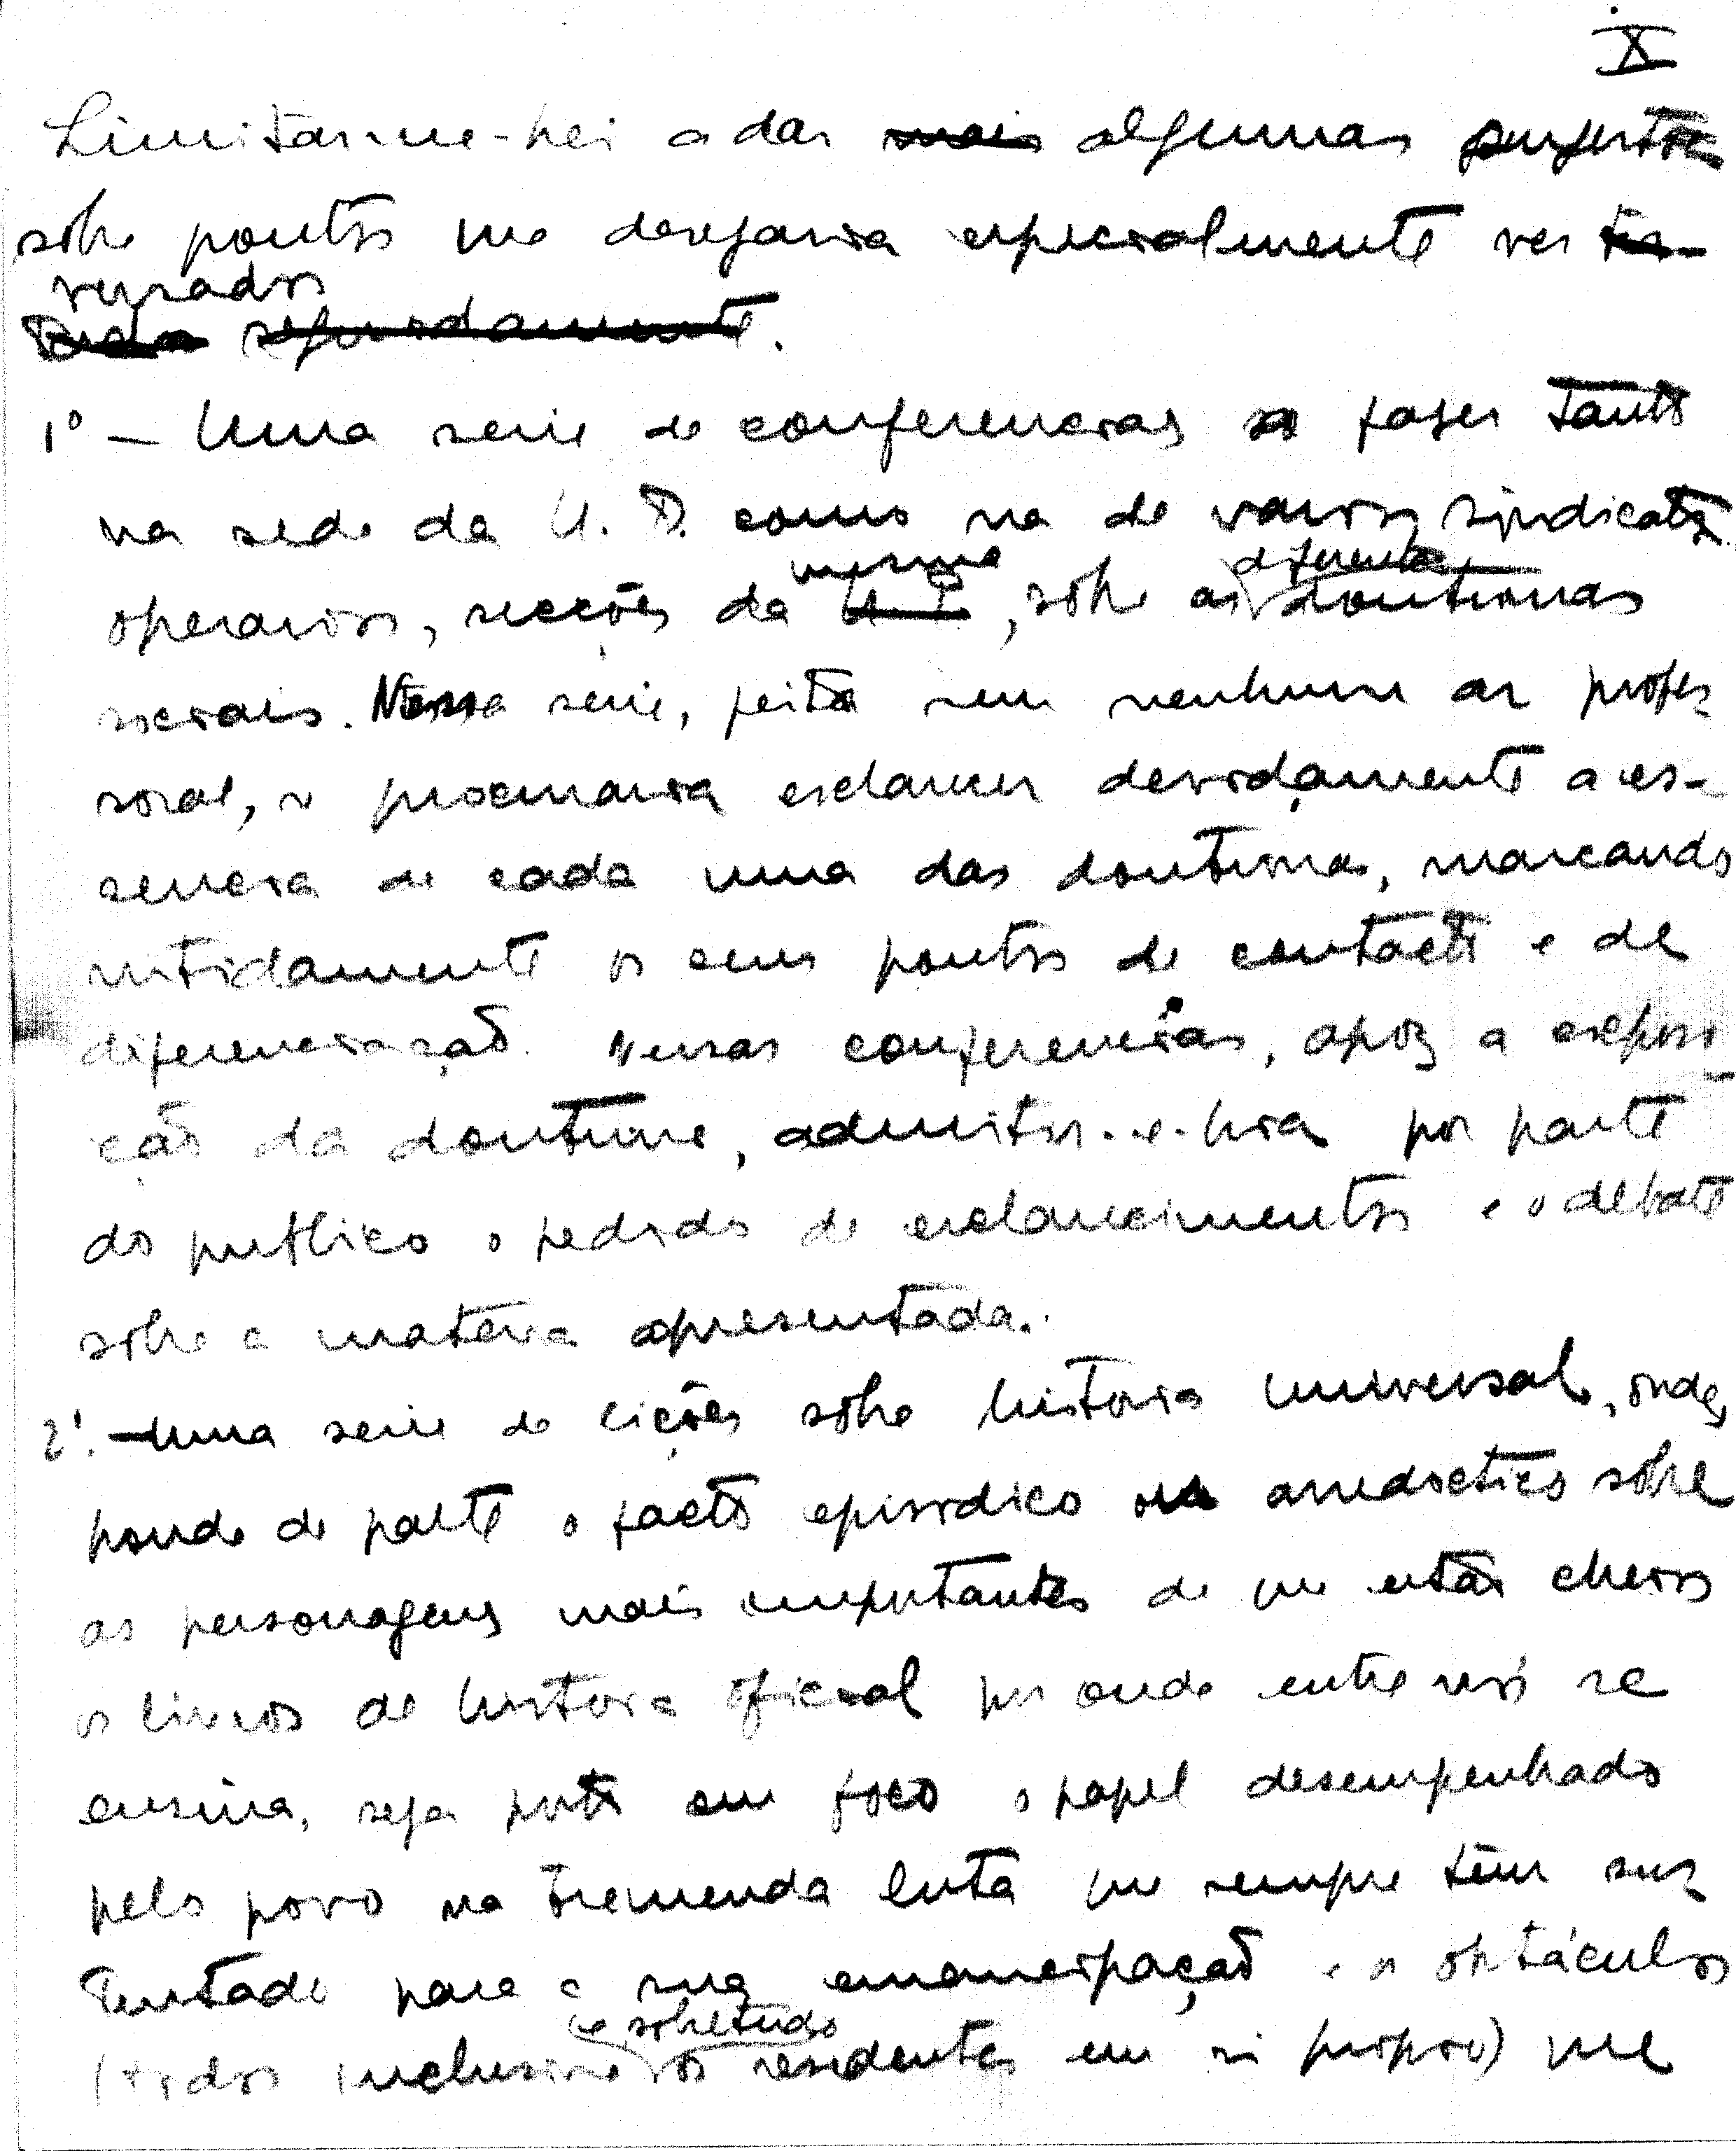 X
Limitar-me-hei a dar mais algumas sugestões
sôbre pontos que desejaria especialmente ver
versados
seguidamente.
1º — Uma serie de conferencias a fazer tanto
na sede da U. P. como na de varios sindicatos
mesma diferentes
operarios, secções da U. P., sôbre as doutrinas
sociais. Nessa serie, feita sem nenhum ar profes-
soral, se procuraria esclarecer devidamente a es-
sencia de cada uma das doutrinas, marcando
nitidamente os seus pontos de contacto e de
diferenciação. Nessas conferencias, apoz a exposi-
ção da doutrina, admitir-se-hia por parte
do publico o pedido de esclarecimentos e o debate
sôbre a materia apresentada.
2º. — Uma serie de lições sôbre historia universal, onde,
pondo de parte o facto episodico ou anedoctico sôbre
as personagens mais importantes de que estão cheios
os livros de historia oficial por onde entre nós se
ensina, seja posto em foco o papel desempenhado
pelo povo na tremenda luta que sempre têm sus-
tentado para a sua emancipação e os obstáculos
e sobretudo
(todos inclusive os residentes em si proprio) que